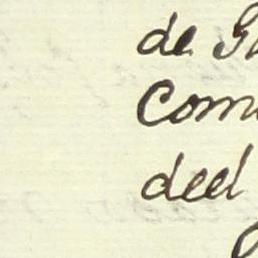 de
Com
deel